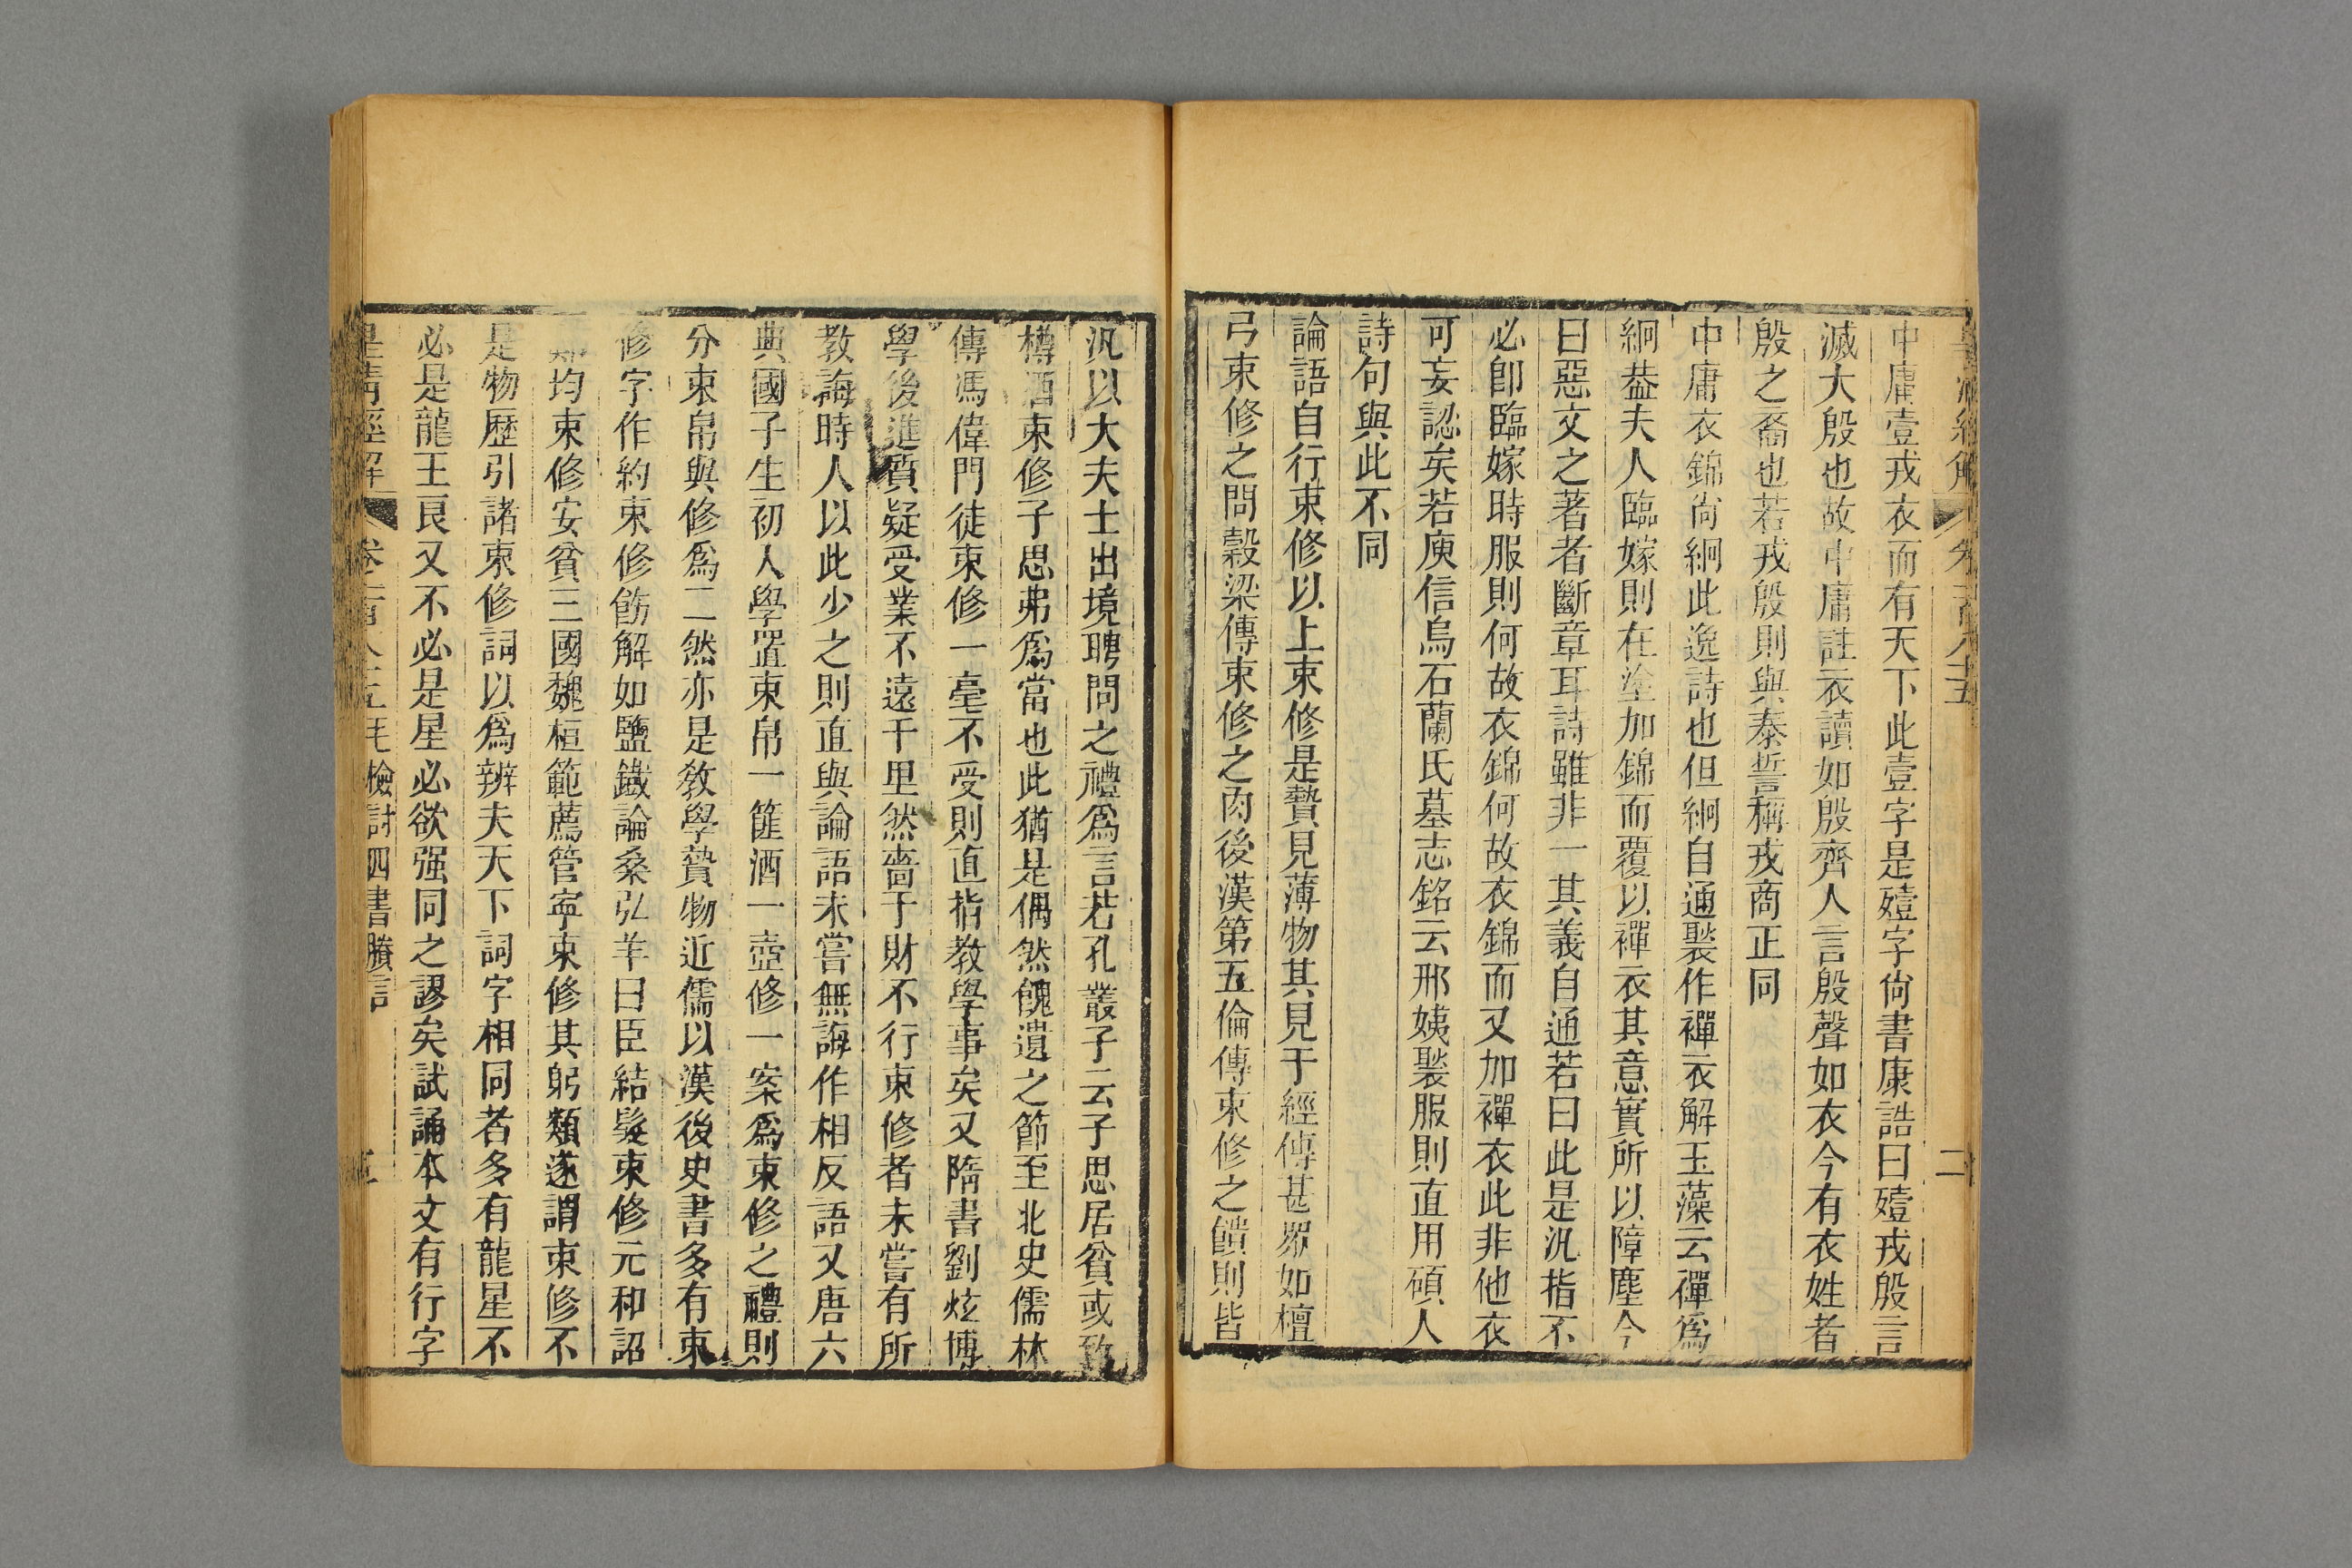 皇清經解 卷一百八十五 二
中庸壹戎衣而有天下此壹字是殪字尙書康誥曰殪戎殷言
滅大殷也故中庸註衣讀如殷齊人言殷聲如衣今有衣姓者
殷之裔也若戎殷則與泰誓稱戎商正同
中庸衣錦尙絅此逸詩也但絅自通褧作襌衣解玉藻云襌爲
絅葢夫人臨嫁則在塗加錦而覆以襌衣其意實所以障塵今
曰惡文之著者斷章耳詩雖非一其義自通若曰此是汎指不
必卽臨嫁時服則何故衣錦何故衣錦而又加襌衣此非他衣
可妄認矣若庾信烏石蘭氏墓志銘云邢姨褧服則直用碩人
詩句與此不同
論語自行束修以上束修是贄見薄物其見于經傳甚眾如檀
弓束修之問穀梁傳束修之肉後漢第五倫傳束修之饋則皆
汎以大夫士出境聘問之禮爲言若孔叢子云子思居貧或致
樽酒束修子思弗爲當也此猶是偶然餽遺之節至北史儒林
傳馮偉門徒束修一毫不受則直指教學事矣又隋書劉炫博
學後進質疑受業不遠千里然嗇于財不行束修者未嘗有所
教誨時人以此少之則直與論語未嘗無誨作相反語又唐六
典國子生初入學置束帛一篚酒一壺修一案爲束修之禮則
分束帛與修爲二然亦是教學贄物近儒以漢後史書多有束
修字作約束修飭解如鹽鐵論桑弘羊曰臣結髮束修元和詔
鄭均束修安貧三國魏桓範薦管寧束修其躬類遂謂束修不
是物歷引諸束修詞以爲辨夫天下詞字相同者多有龍星不
必是龍王良又不必是星必欲强同之謬矣試誦本文有行字
皇清經解 卷一百八十五 毛檢討四書賸言 三